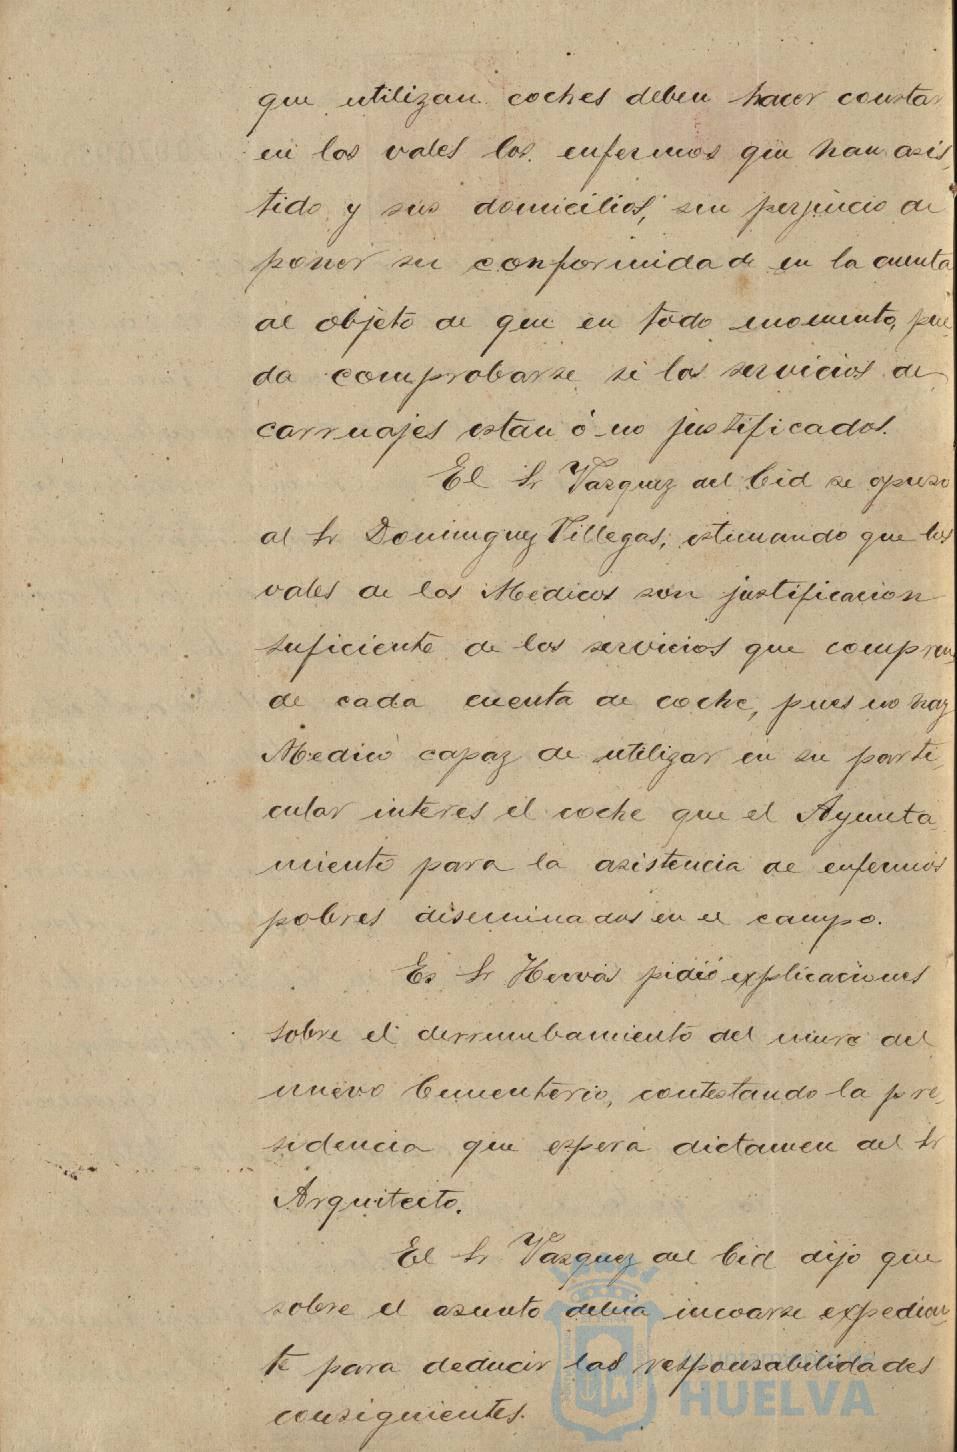 que utilizan coches deben hacer constar
en los vales los enfermos que han asis,
tido y sus domicilios, sin perjuicio de
poner su conformidad en la cuenta
al objeto de que en todo momento, pue,
da comprobarse si los servicios de
carruajes estan ó no justificados.
El Sr Vazquez del Cid se opuso
al Sr Dominguez Villegas, estimando que los
vales de los Medicos son justificacion
suficiente de los servicios que compren,
de cada cuenta de coche, pues no hay
Medico capaz de utilizar en su parti,
cular interes el coche que el Ayunta,
miento para la asistencia de enfermos
pobres diseminados en el campo.
El Sr Hervás pidió explicaciones
sobre el derrumbamiento del muro del
nuevo Cementerio, contestando la pre,
sidencia que espera dictamen del Sr
Arquitecto.
El Sr Vazquez del Cid dijo que
sobre el asunto debia incoarse expedien
te para deducir las responsabilidades
consiguientes.
Ayuntamiento de
HUELVA